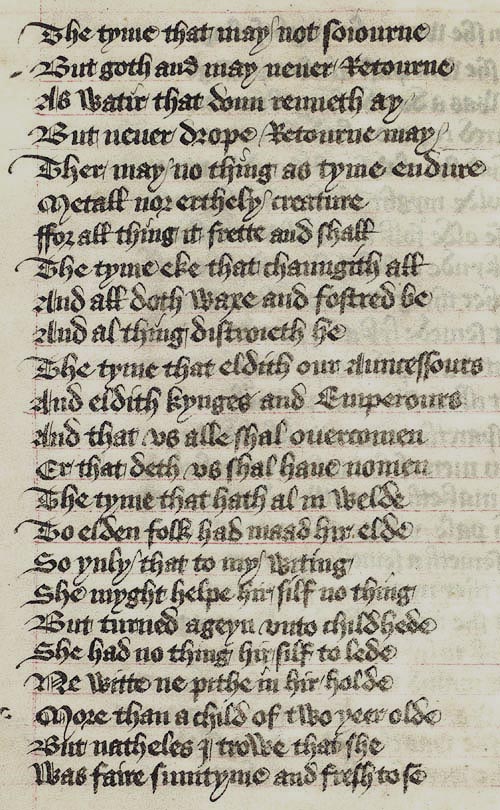 The tyme that may not soiourne
But goth and may neuer Retourne
As watir that doun renneth ay
But neuer drope Retourne may
Ther may no thing as tyme endure
Metall nor erthely creature
ffor all thing it frette and shall
The tyme eke that chaungith all
And all doth waxe and fostred be
And al thing distroieth he
The tyme that eldith our Auncessours
And eldith kynges and Emperours
And that vs alle shal ouercomen
Er that deth vs shal haue nomen
The tyme that hath al in welde
To elden folk had maad hir elde
So ynly that to my witing
She myght helpe hir silf no thing
But turned ageyn vnto childhede
She had no thing hir silf to lede
Ne witte ne pithe in hir holde
More than a child of two yeer olde
But natheles I trowe that she
Was faire sumtyme and fresh to se